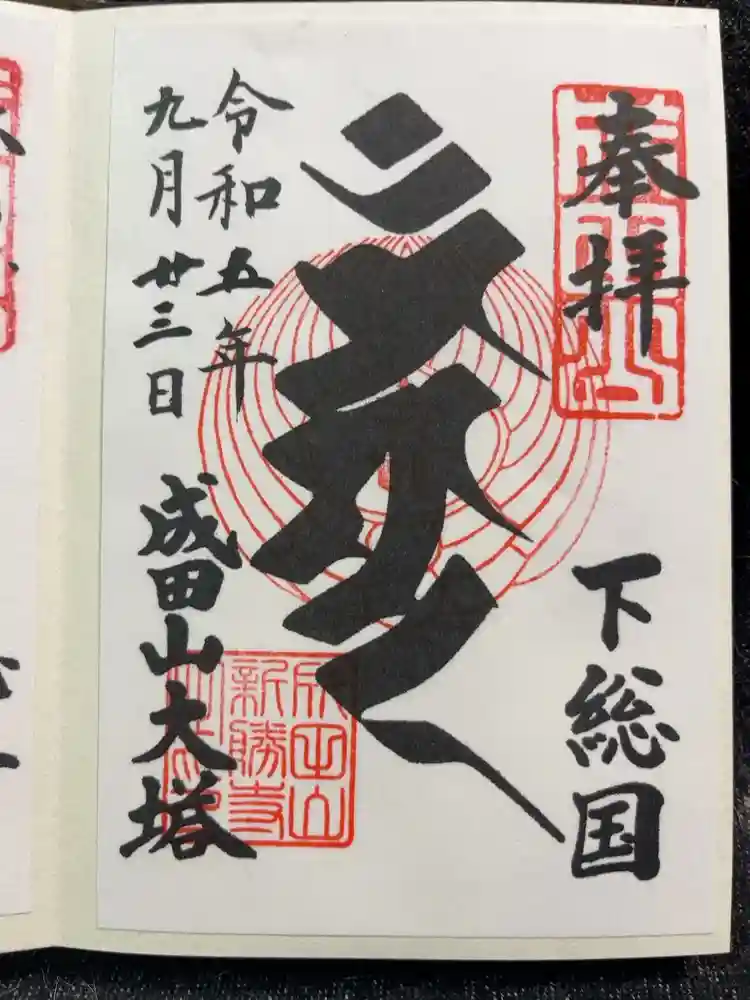 奉拝
下総国
令和五年
九月廿三日
成田山大塔
成田山
新勝寺